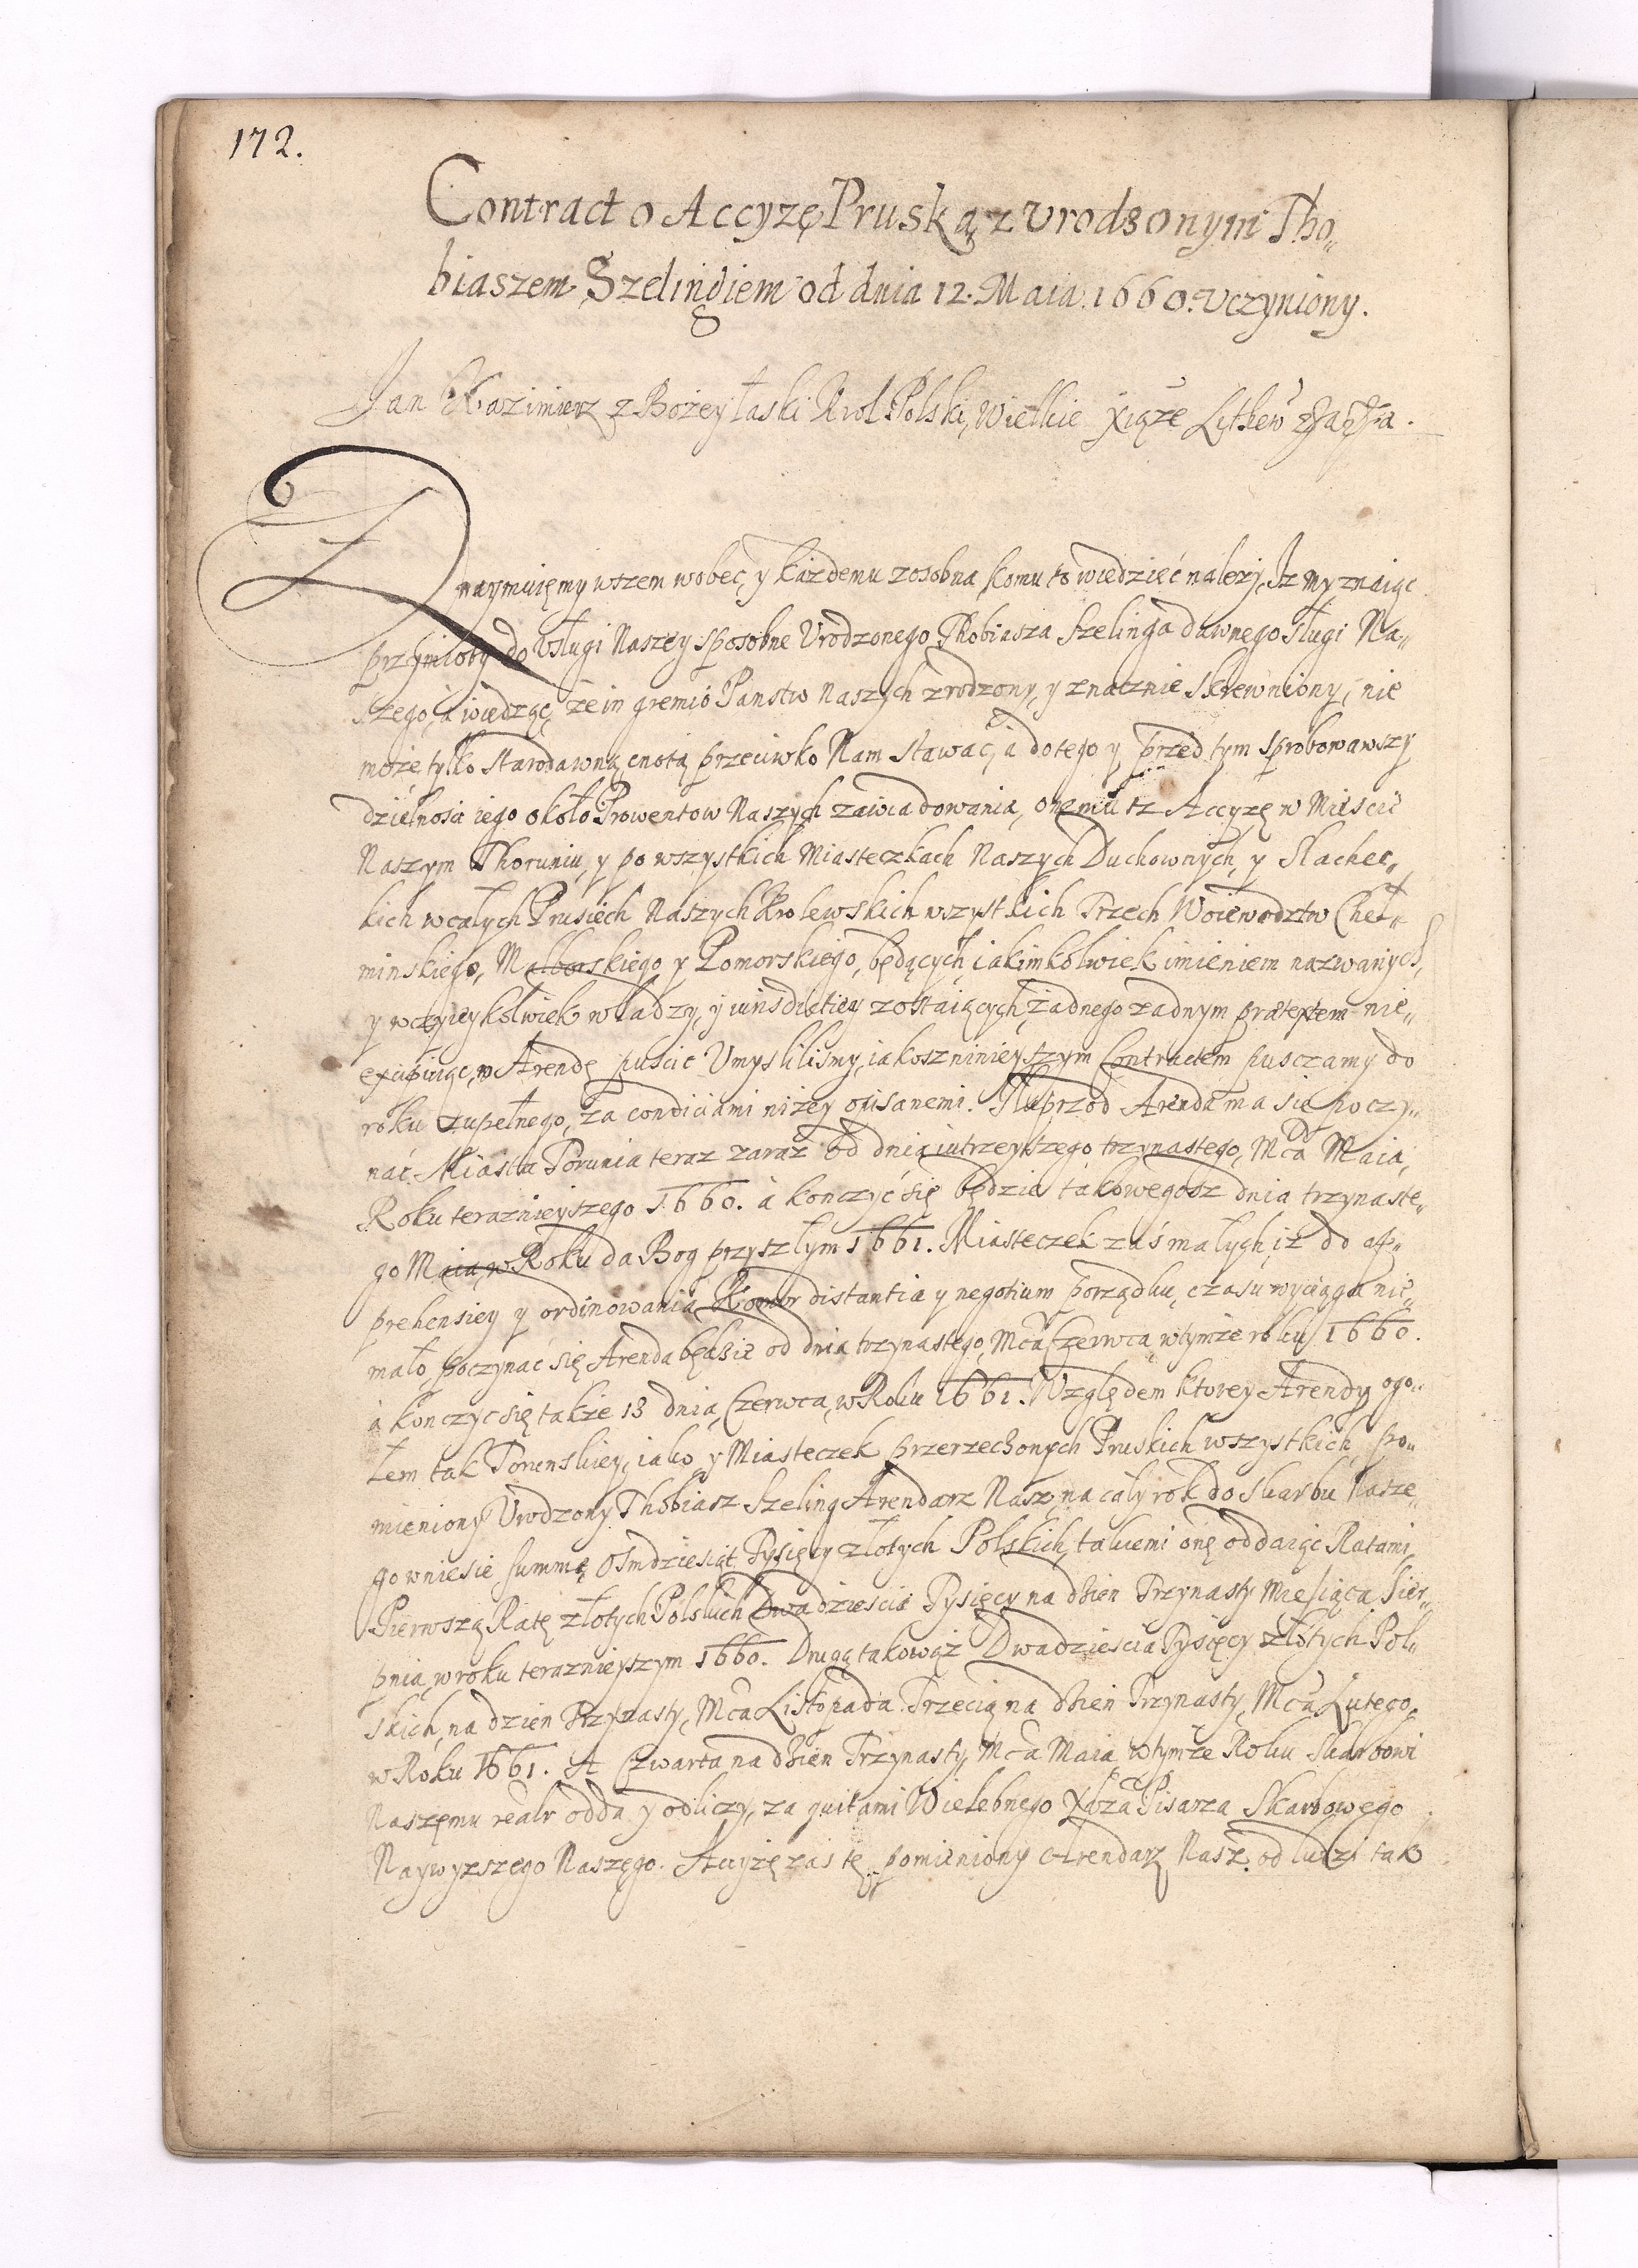 172.
Contract o Accyzę Pruską z Vrodzonym Tho„
biaszem Szelingiem od dnia 12. Maia. 1660. Vczyniony.
Jan Kazimierz z Bożey łaski Krol Polski, Wielkie Xiąże Litew
Znaymuięmy wszem wobec, y każdemu zosobna, komu to wiedzieć należy, Iz my znaiąc
przymioty do Vsługi Naszey sposobne Vrodzonego Thobiasza Szelinga dawnego sługi Na„
szego, à wiedząc, że in gremio Panstw Naszych zrodzony, y znacznie skrewniony, nie
może tylko starodawną cnotą przeciwko Nam stawać, à do tego y przed tym sprobowawszy
dzielnosci iego około Prowentow Naszych zawiadowania, onemu tz Accyzę w Miescie
Naszym Thoruniu, y po wszystkich Miasteczkach Naszych Duchownych, y Slachec„
kich w całych Prusiech Naszych Krolewskich wszystkich Trzech Woiewodztw Cheł„
minskiego, Malborskiego y Pomorskiego, będących iakimkolwiek imieniem nazwanych,
y w czyieykolwiek władzy, y iurisdictiey zostaiących, żadnego żadnym praetextem nie„
excipuiąc, w Arendę puścić Umysliliśmy, iakosz ninieyszym Contractem pusczamy do
roku zupełnego, za condiciami niżey opisanemi. Naprzod Arenda ma się poczy„
nać. Miasta Torunia teraz zaraz od dnia iutrzeyszego trzynastego, Mca Maia,
Roku teraznieyszego 1660. à konczyć się będzie takowegosz dnia trzynaste„
go Maia, w Roku da Bog przyszłym 1661. Miasteczek zaś małych, iż do ap„
prehensiey y ordinowania distantia y negotium porządku, czasu wyciąga nie„
mało, poczynać się Arenda będzie od dnia trzynastego, Mca Czerwca, w tymże roku 1660.
à konczyc się także 13 dnia, Czerwca, w Roku 1661. Względem ktorey Arendy ogo„
łem tak Torunskiey, iako y Miasteczek przerzeczonych Pruskich wszystkich, po„
mieniony Vrodzony Thobiasz Szeling Arendarz Nasz na cały rok do Skarbu Nasze„
go wniesie summę Osmdziesiąt Tysięcy złotych Polskich, takiemi onę oddaiąc Ratami,
Pierwszą Ratę złotych Polskich Dwadziescia Tysięcy na dzien Trzynasty Miesiąca Sier„
pnia, w roku teraznieyszym 1660. Drugą takowąż Dwadziescia Tysięcy złotych Pol„
skich, na dzien Trzynasty, Mca Listopada. Trzecią na dzień Trzynasty, Mca Lutego,
w Roku 1661. A Czwarta na dzien Trzynasty Mca Maia w tymże Roku Skarbowi
Naszemu realr odda y odliczy, za quitami Wielebnego Xdza Pisarza Skarbowego
Naywyzszego Naszego. Accyzę zas tę pomieniony Arendarz Nasz od ludzi tak